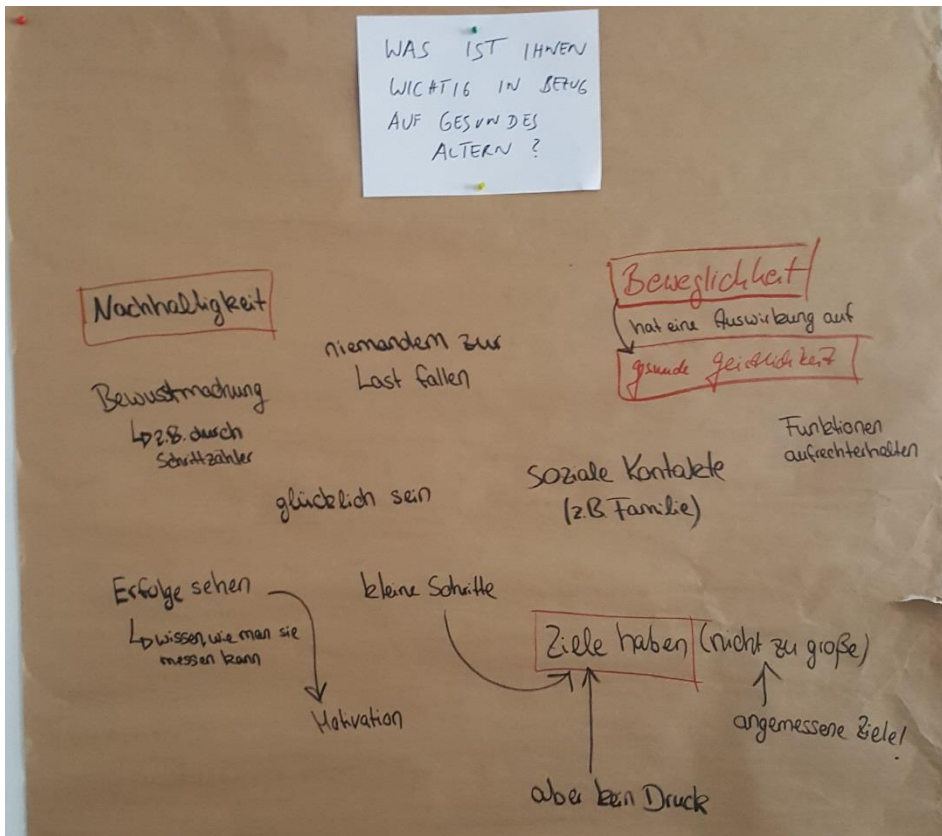 WAS IST IHNEN
WICHTIG IN BEZUG
AUF GESUNDES
ALTERN?
Nachhaltigkeit
Bewusstmachung
↳ z.B. durch
Schrittzähler
niemandem zur
Last fallen
Beweglichkeit
hat eine Auswirkung auf
gesunde geistlichkeit
Funktionen
aufrechterhalten
glücklich sein
soziale Kontakte
(z.B. Familie)
Erfolge sehen
↳ wissen, wie man sie
messen kann
Motivation
kleine Schritte
Ziele haben (nicht zu große)
angemessene Ziele!
aber kein Druck